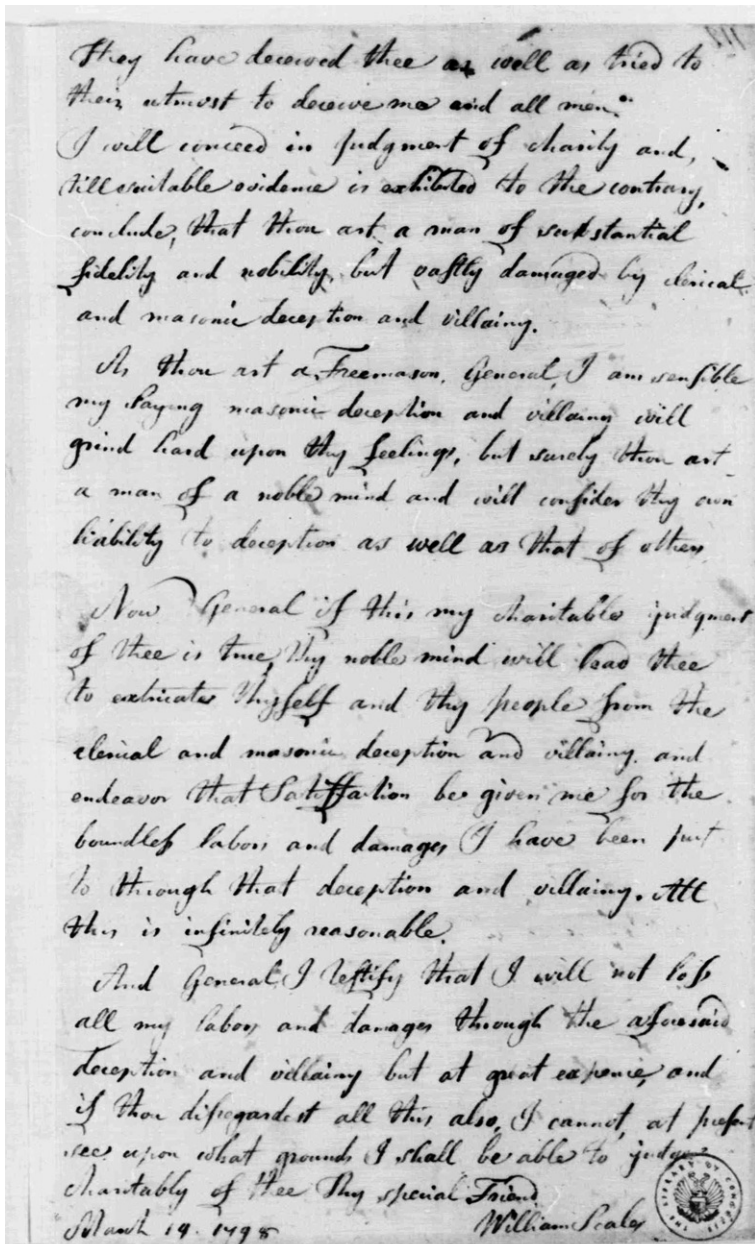 They have deceived thee as well as tried to
their utmost to deceive me and all men."
I will conceed in judgment of charity and,
till suitable evidence is exhibited to the contrary,
conclude, that thou art a man of substantial
fidelity and nobility, but vastly damaged by clerical
and masonic deception and villainy.
As thou art a Freemason, General, I am sensible
my saying masonic deception and villainy will
grind hard upon thy feelings, but surely thou art
a man of a noble mind and will consider thy own
liability to deception as well as that of others
Now General if this my charitable judgment
of thee is true, thy noble mind will lead thee
to extricate thyself and thy people from the
clerical and masonic deception and villainy. and
endeavor that Satisfaction be given me for the
boundless labors and damages I have been put
to through that deception and villainy. All
this is infinitely reasonable.
And General, I testify that I will not loss
all my labors and damages through the aforesaid
deception and villainy but at great expence, and
if thou disregardest all this also, I cannot, at present
see upon what grounds I shall be able to judge
charitably of thee Thy special Friend
March 14. 1798 William Scales
THE LIBRARY OF CONGRESS